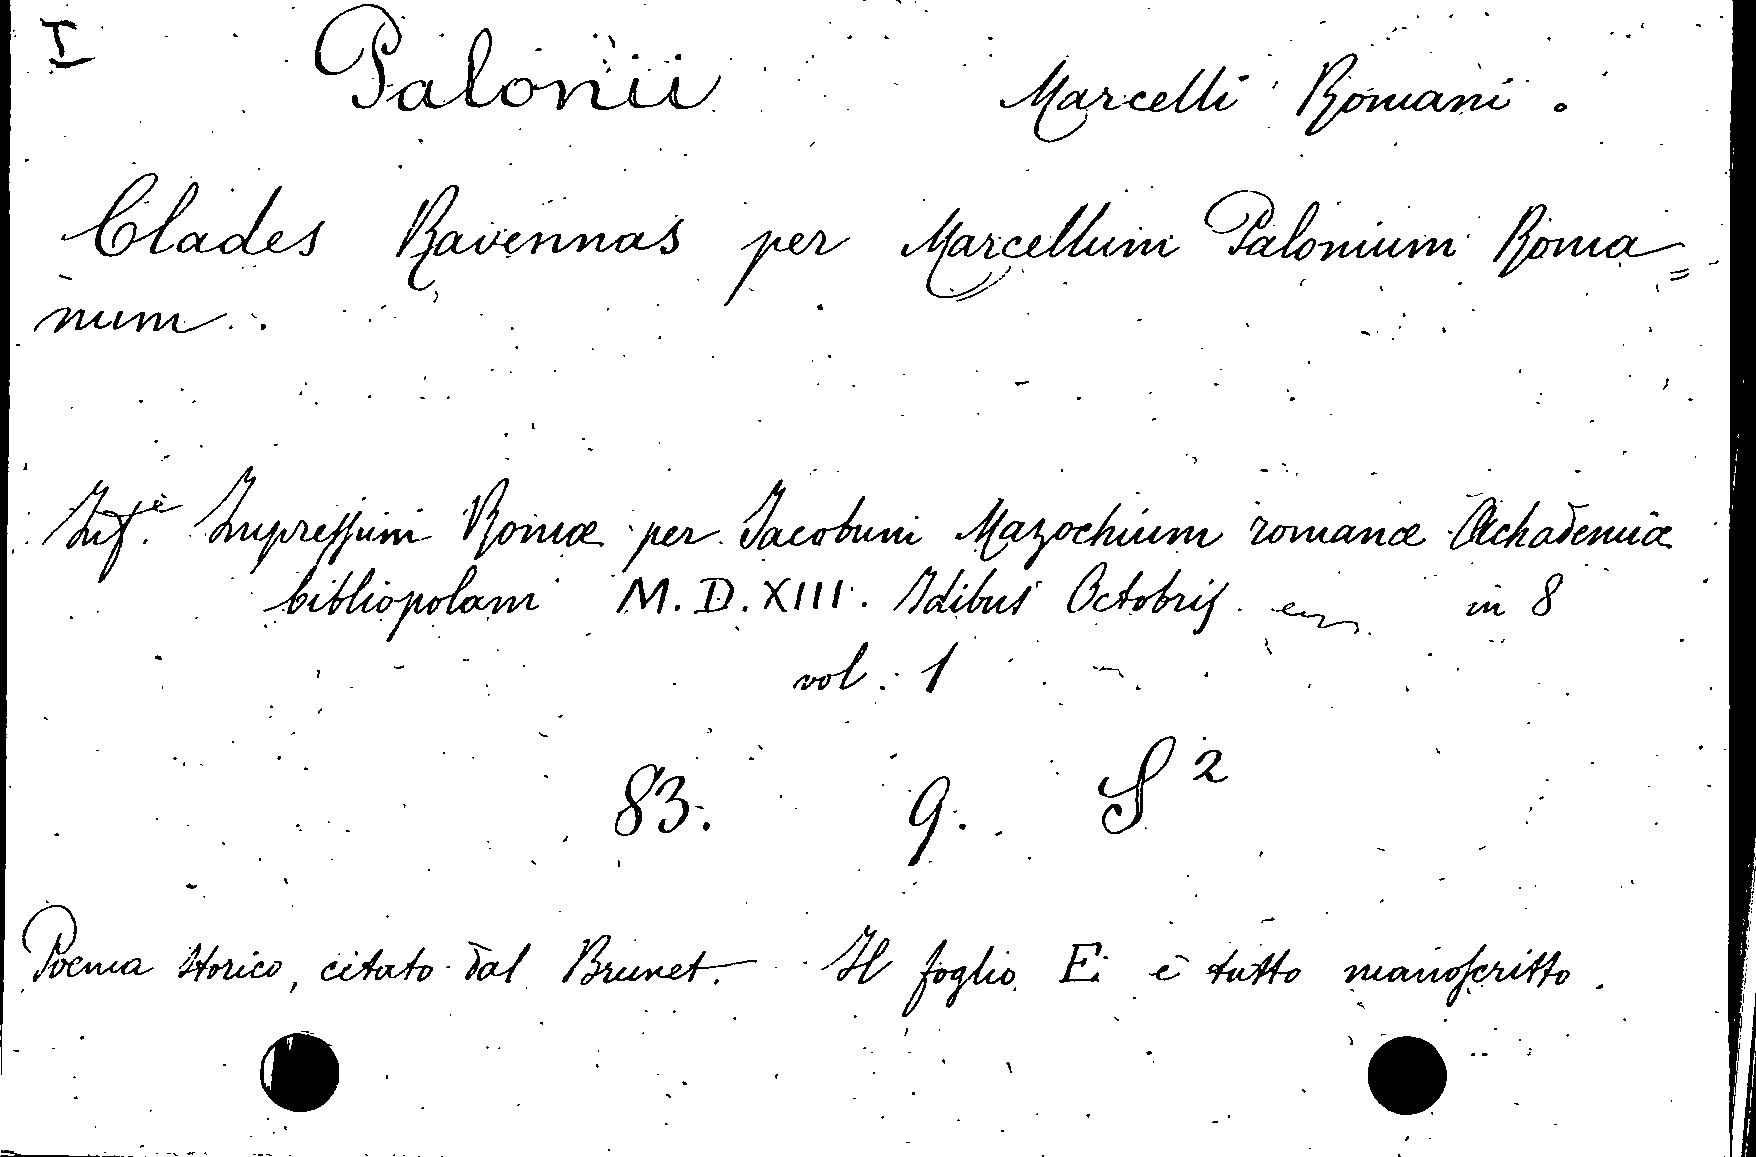 I
Palonii Marcelli Romani.
Clades Ravennas per Marcellum Palonium Roma=
num.
Inf.e Impressum Romæ per Jacobum Mazochium romanæ Achademiæ
bibliopolam M.D.XIII. Idibus Octobris. in 8
vol. 1
83. 9. S 2
Poema storico, citato dal Brunet. Il foglio E è tutto manoscritto.